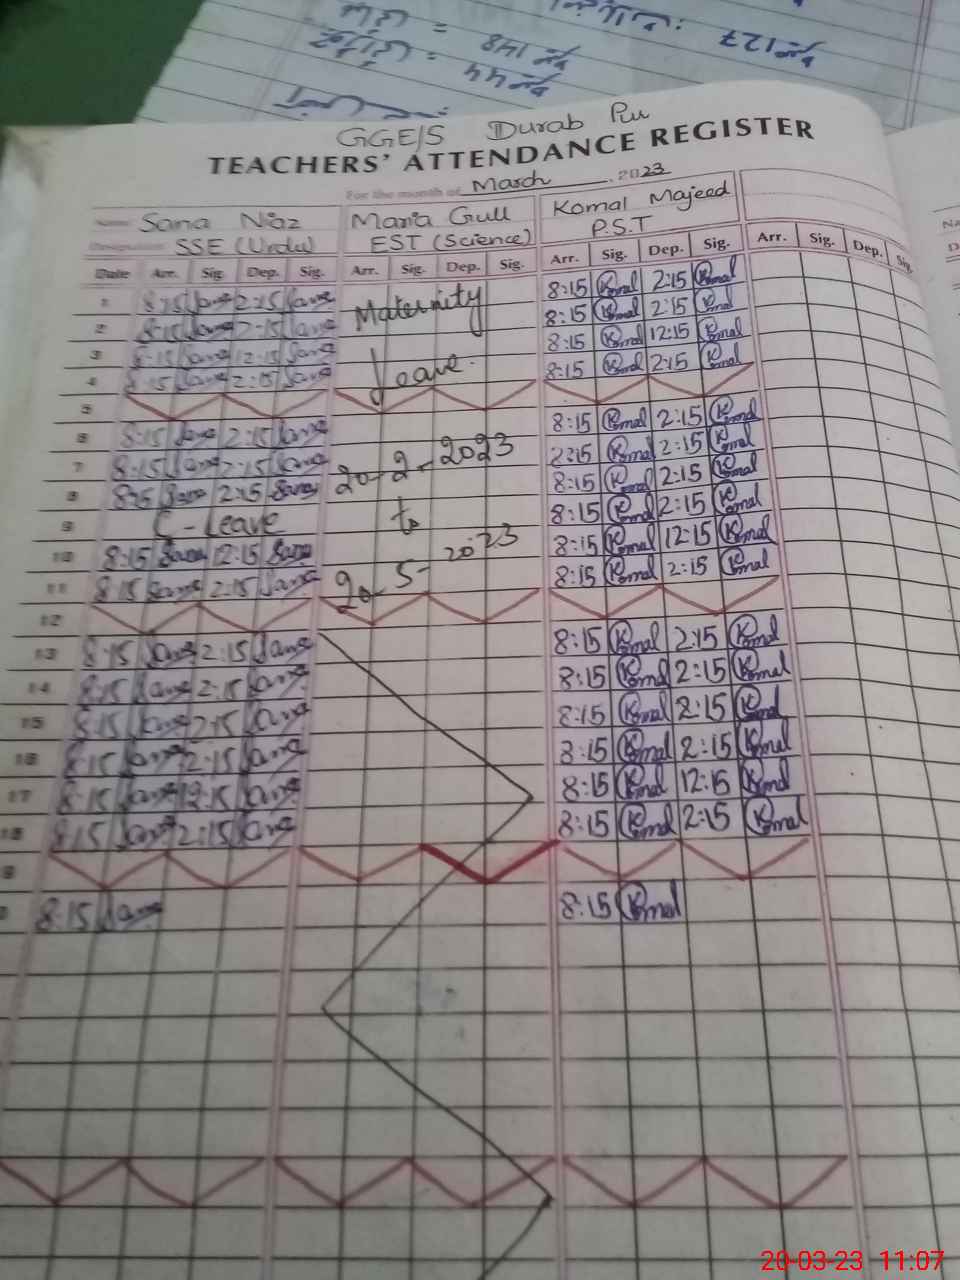 127
148 =
44 =
GGE/S Durab Pu
TEACHERS' ATTENDANCE REGISTER
For the month of March 2023
Name: Sana Niaz Maria Gull Komal Majeed
Designation: SSE (Urdu) EST (Science) P.S.T
Date Arr. Sig. Dep. Sig. Arr. Sig. Dep. Sig. Arr. Sig. Dep. Sig. Arr. Sig. Dep. Sig.
1 8:15 Sana 2:15 Sana Maternity 8:15 Komal 2:15 Komal
2 8:15 Sana 2:15 Sana 8:15 Komal 2:15 Komal
3 8:15 Sana 12:15 Sana Leave. 8:15 Komal 12:15 Komal
4 8:15 Sana 2:15 Sana 8:15 Komal 2:15 Komal
5
6 8:15 Sana 2:15 Sana 8:15 Komal 2:15 Komal
7 8:15 Sana 2:15 Sana 20-2-2023 2:15 Komal 2:15 Komal
8 8:15 Sana 2:15 Sana 8:15 Komal 2:15 Komal
9 C-Leave to 8:15 Komal 2:15 Komal
10 8:15 Sana 12:15 Sana 8:15 Komal 12:15 Komal
11 8:15 Sana 2:15 Sana 20-5-2023 8:15 Komal 2:15 Komal
12
13 8:15 Sana 2:15 Sana 8:15 Komal 2:15 Komal
14 8:15 Sana 2:15 Sana 8:15 Komal 2:15 Komal
15 8:15 Sana 2:15 Sana 8:15 Komal 2:15 Komal
16 8:15 Sana 2:15 Sana 8:15 Komal 2:15 Komal
17 8:15 Sana 12:15 Sana 8:15 Komal 12:15 Komal
18 8:15 Sana 2:15 Sana 8:15 Komal 2:15 Komal
9
8:15 Sana 8:15 Komal
Na
D
20-03-23 11:07